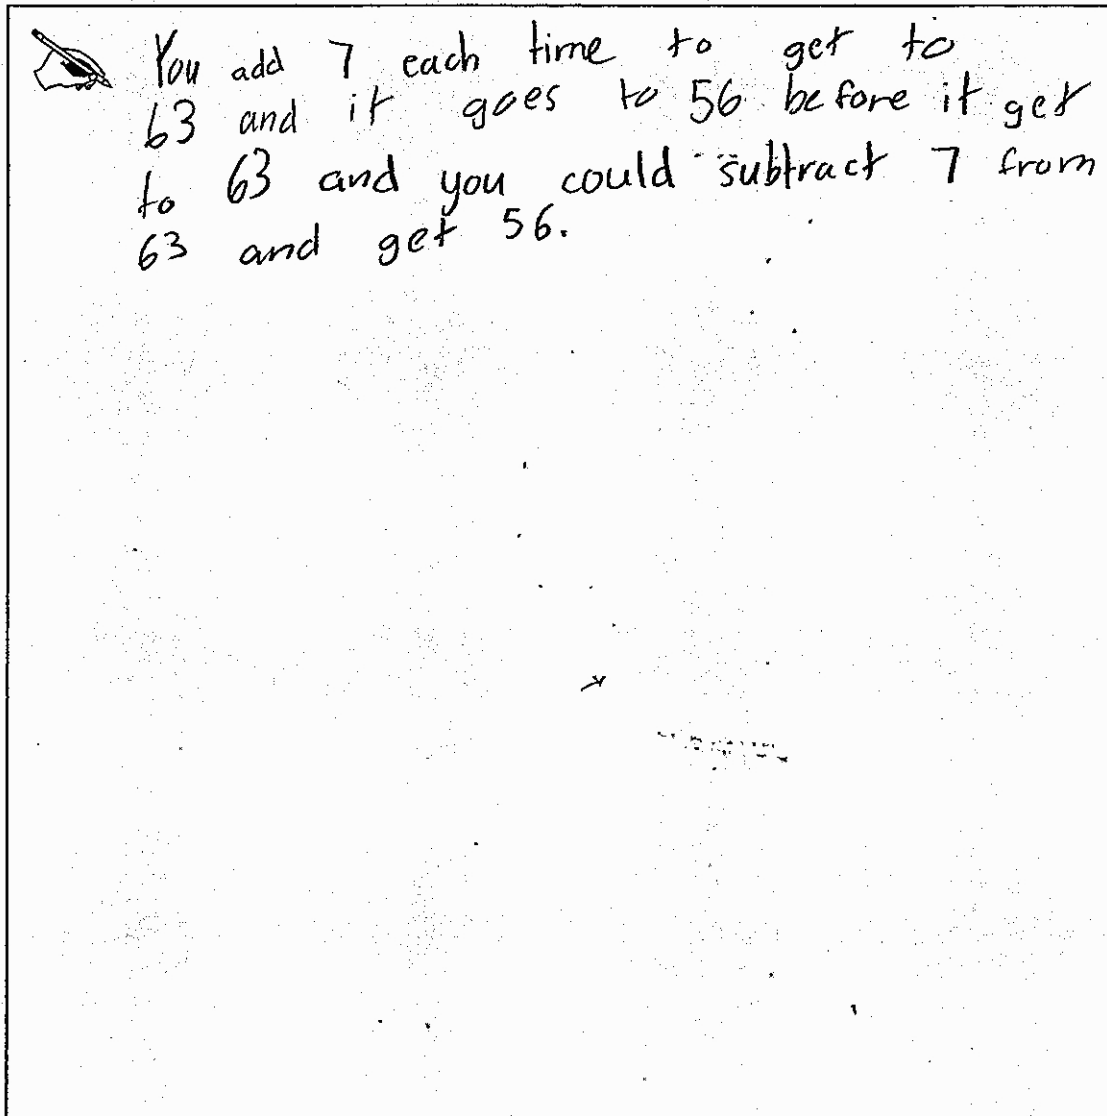 You add 7 each time to get to
63 and it goes to 56 before it get
to 63 and you could subtract 7 from
63 and get 56.